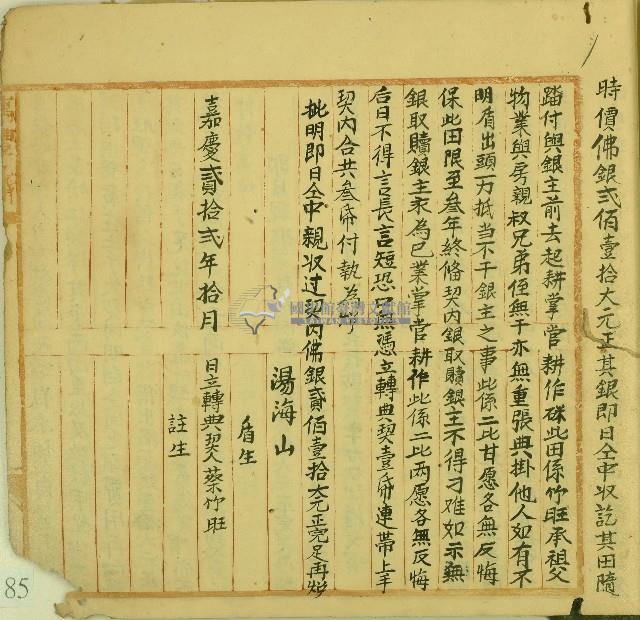 時價佛銀弍佰壹拾大元正其銀即日仝中収訖其田隨
踏付與銀主前去起耕掌管耕作保此田係竹旺承祖父
物業與房親叔兄弟侄無干亦無重張典掛他人如有不
明盾出頭一力抵当不干銀主之事此係二比甘愿各無反悔
保此田限至叁年終俻契內銀取贖銀主不得刁难如示無
銀取贖銀主永為己業掌管耕作此係二比两愿各無反悔
后日不得言長言短恐口無憑立轉典契壹帋連帶上手
契內合共叁帋付執為
批明即日仝中親収过契內佛銀貳佰壹拾大元正完足再炤
湯海山
盾生
嘉慶貳拾弍年拾月
日立轉典契人蔡竹旺
註生
85
國史館臺灣文獻館